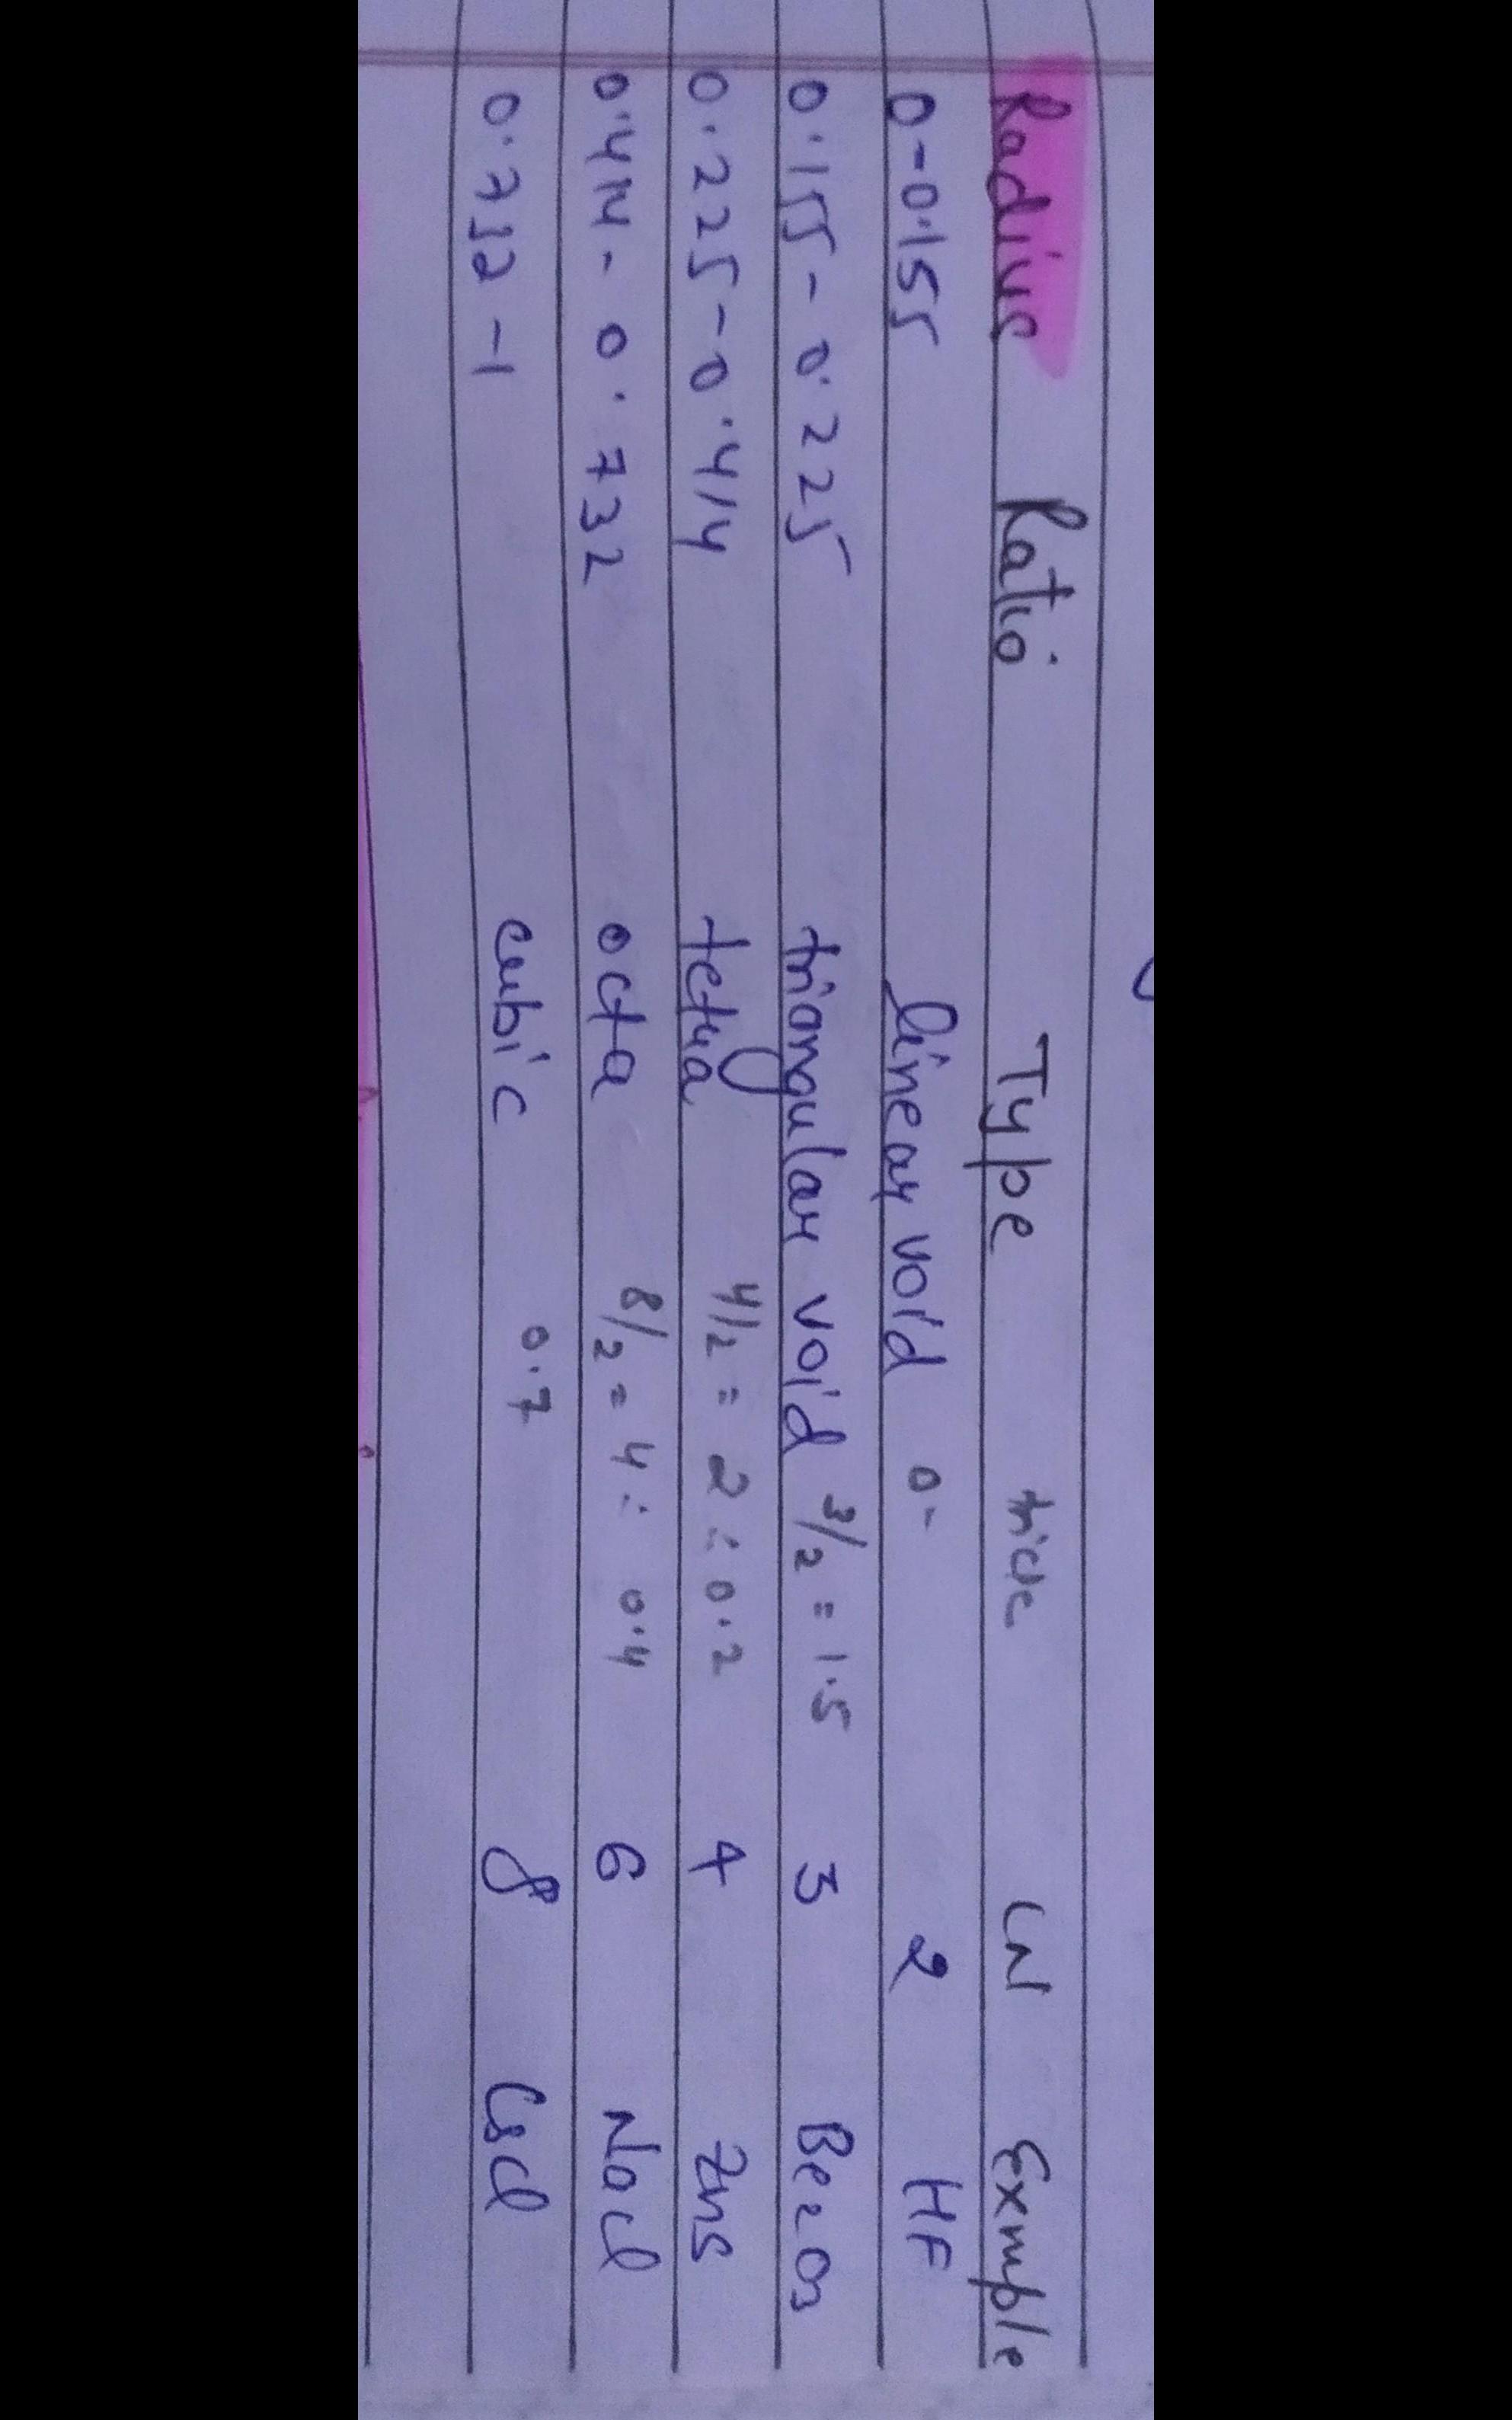 Radius Ratio Type trick CN Exmple
0-0.155 linear void 0- 2 HF
0.155-0.225 triangular void 3/2 = 1.5 3 Be2O3
0.225-0.414 tetra 4/2 = 2 ∴ 0.2 4 ZnS
0.414-0.732 octa 8/2 = 4 ∴ 0.4 6 NaCl
0.732-1 cubic 0.7 8 CsCl